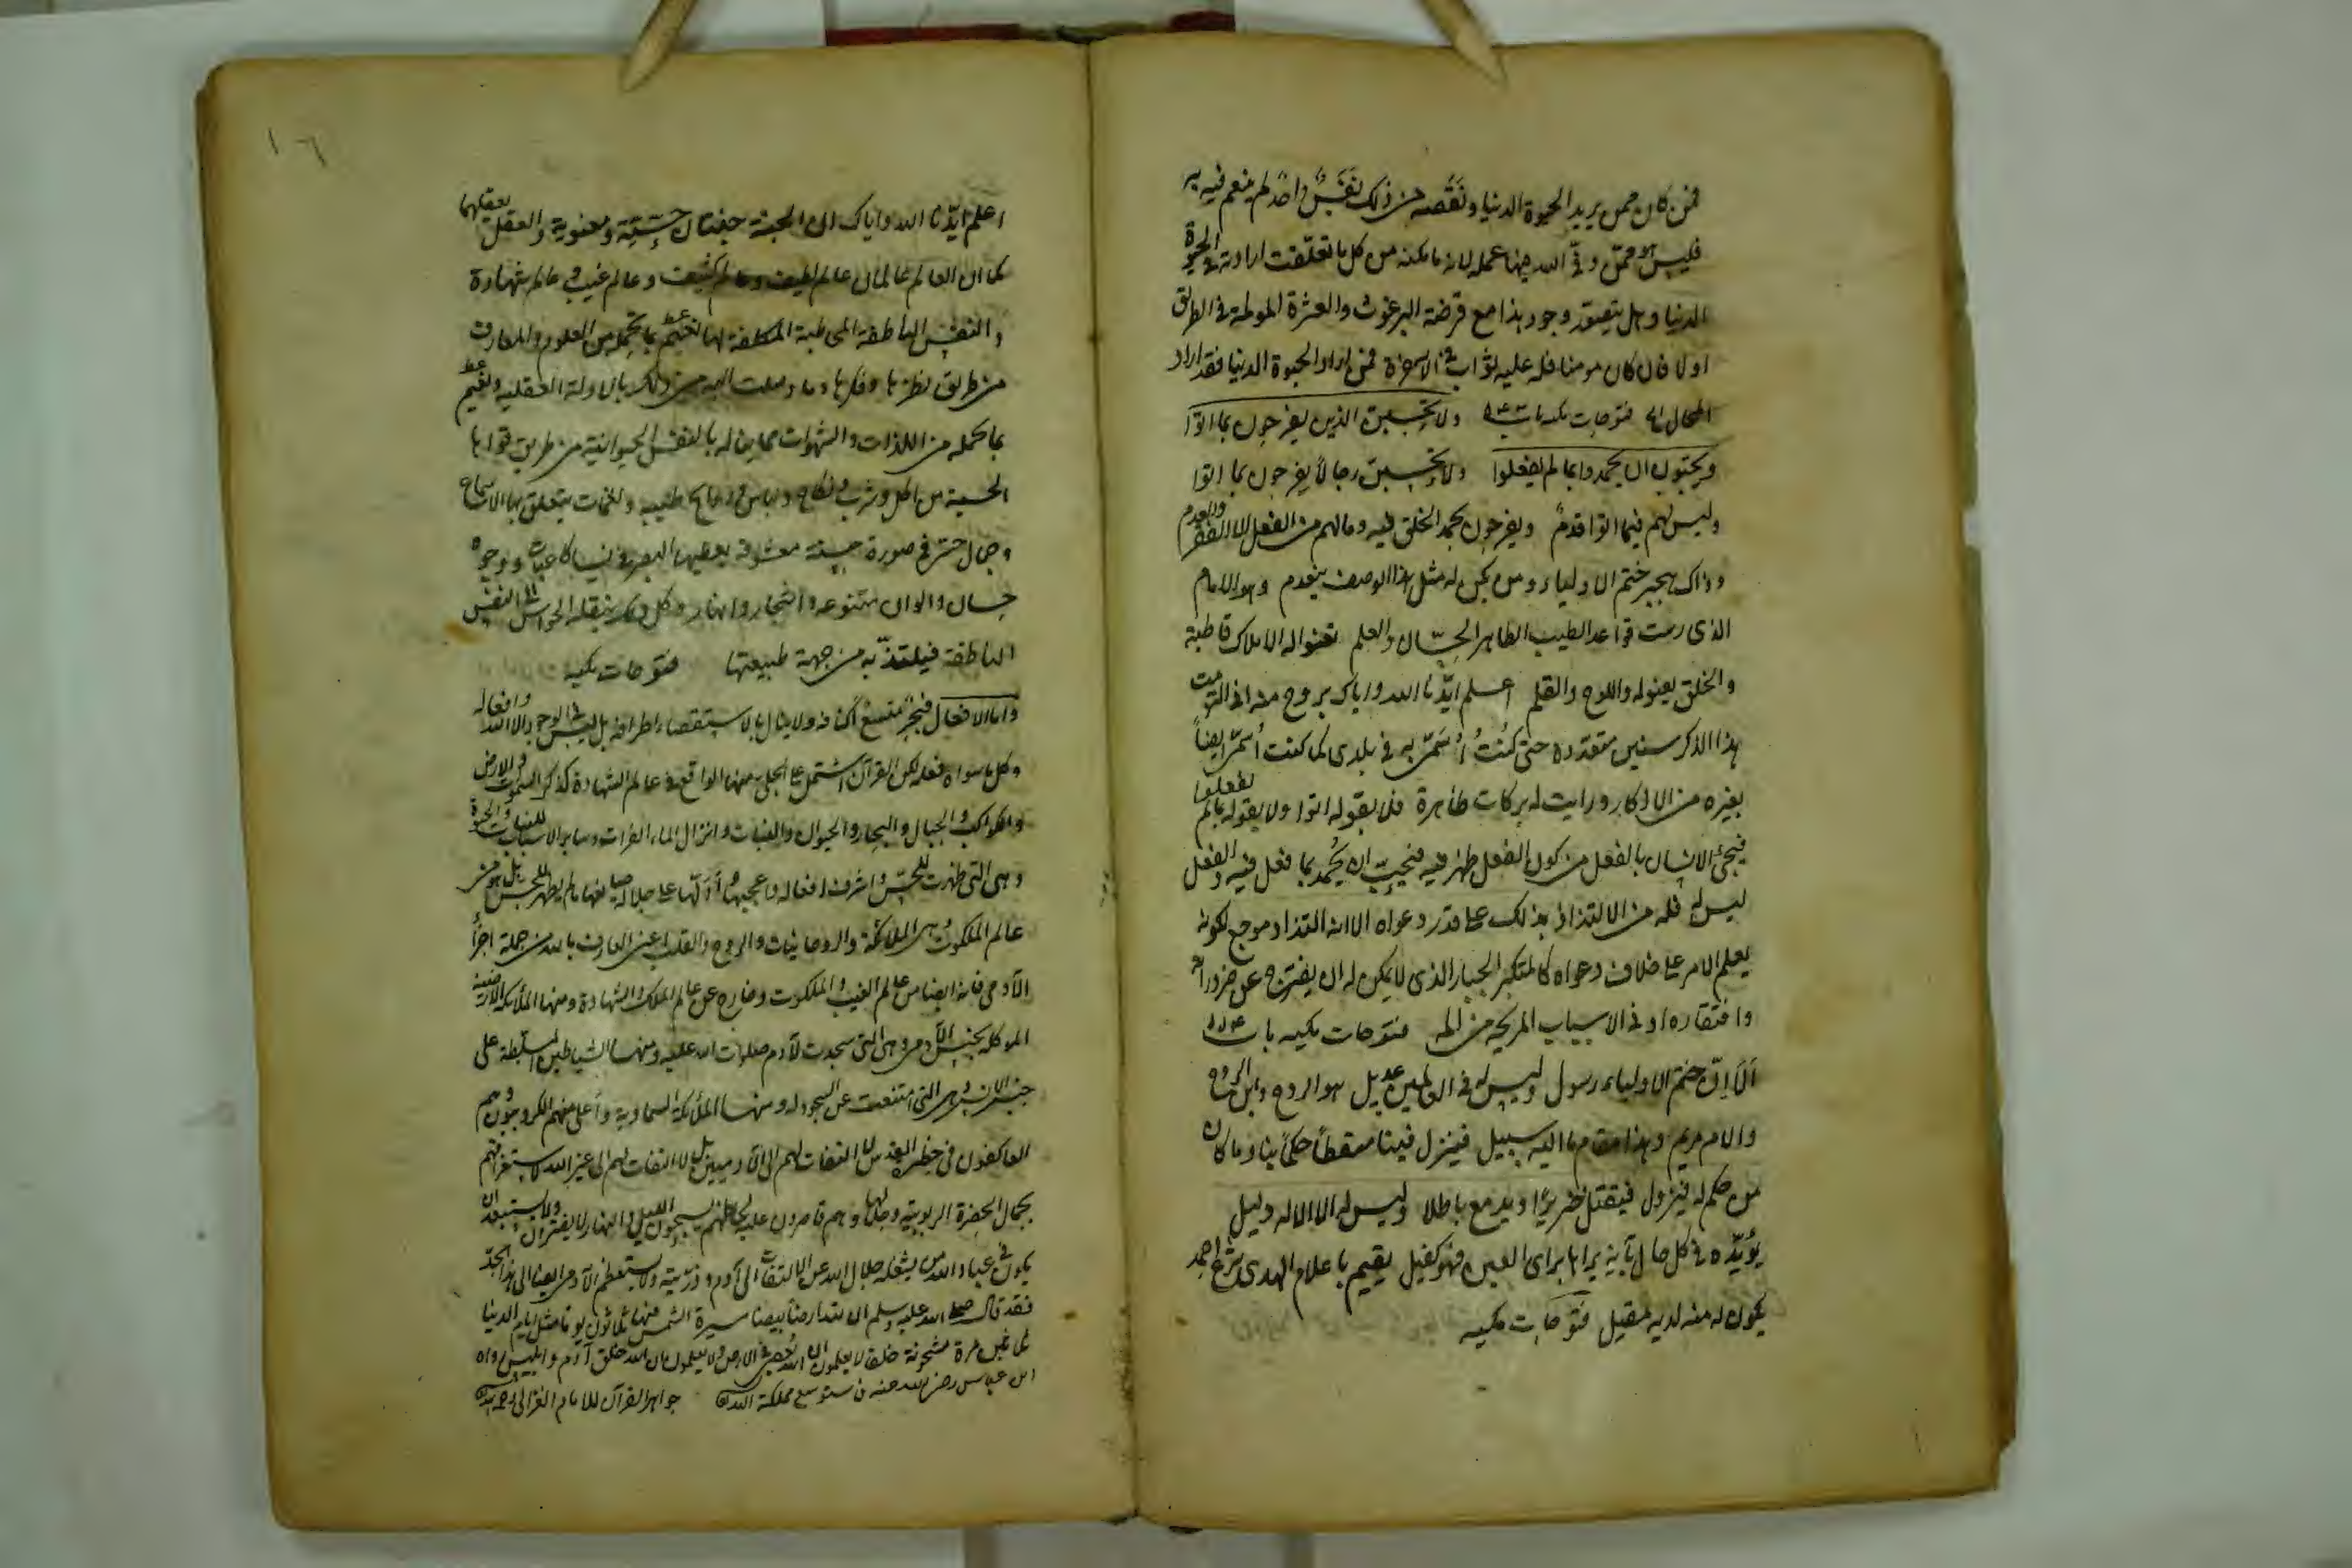 فمن كان ممن يريد الحيوة الدنيا ونقصه من ذلك نفس واحد لم ينعم فيه به
فليس هو ممن وفى الله فيها عمله لانه ما مكنه من كل ما تعلقت ارادته في الحيوة
الدنيا وهل يتصور وجود هذا مع قرصة البرغوث والعثرة المولمة في الطريق
اولا فان كان مومنا فله عليه ثواب في الاخرة فمن اراد الحيوة الدنيا فقد اراد
المحال فتوحات مكيه باب ولا تحسبن الذين يفرحون بما اتوا
ويحبون ان يحمدوا بما لم يفعلوا ولا تحسبن رجالا يفرحون بما اتوا
وليس لهم فيما اتوا قدم ويفرحون بحمد الخلق فيه وما لهم من الفعل الا الفقر والعدم
وذاك هجير ختم الاولياء ومن يكن له مثل هذا الوصف ينعدم وهو الامام
الذي رست قواعد الطيب الطاهر الحسان والعلم تعنو له الاملاك قاطبة
والخلق يعنو له واللوح والقلم اعلم ايدنا الله واياك بروح منه اني التزمت
هذا الذكر سنين متعددة حتى كنت اسمى به في بلدى كما كنت اسمى ايضا
بغيره من الاذكار ورايت له بركات ظاهرة فلا بقوله اتوا ولا بقوله بما لم يفعلوا
فيجئ الانسان بالفعل من كون الفعل ظهر فيه فيحب ان يحمد بما فعل فيه والفعل
ليس له فله من الالتذاذ بذلك على قدر دعواه الا انه التذاذ موجع لكونه
يعلم الامر على خلاف دعواه كالمتكبر الجبار الذى لا يمكن له ان يفترج عن ضروراته
وافتقاره اذ في الاسباب المريحة من الم فتوحات مكيه باب
الا ان ختم الاولياء رسول وليس له في العالمين عديل هو الروح وابن الروح
والام مريم وهذا مقام ما اليه سبيل فينزل فينا مقسطا حكما بنا وما كان
من حكم له فيزول فيقتل خنزيرا ويدمغ باطلا وليس له الا الاله دليل
يؤيده في كل حال بآية يراها براى العين فهو كفيل يقيم باعلام الهدى شرع احمد
يكون له منه لديه مقيل فتوحات مكيه
١٦
اعلم ايدنا الله واياك ان الجنة جنتان حسية ومعنوية والعقل يعقلهما
كما ان العالم عالمان عالم لطيف وعالم كثيف وعالم غيب وعالم شهادة
والنفس الناطقة المخاطبة المكلفة لها نعيم بما تحمله من العلوم والمعارف
من طريق نظرها وفكرها وما وصلت اليه من ذلك بالادلة العقلية ونعيم
بما تحمله من اللذات والشهوات مما يناله بالنفس الحيوانية من طريق قواها
الحسية من اكل وشرب ونكاح ولباس وروايح طيبة ونغمات يتعلق بها الاسماع
وجمال حسى في صورة حسنة معشوقة يعطيها البصر في نساء كاعبات ووجوه
حسان والوان متنوعه واشجار وانهار وكل ذلك ينقله الحواس الى النفس
الناطقة فيلتذ به من جهة طبيعتها فتوحات مكيه
واما الافعال فبحر متسع اكنافه ولا ينال بالاستقصاء اطرافه بل ليس في الوجود الا الله وافعاله
وكل ما سواه فعله لكن القرآن اشتمل على الجلى منها الواقع في عالم الشهادة كذكر السموات والارض
والكواكب والجبال والبحار والحيوان والنبات وانزال الماء الفرات وساير الاسباب للنبات والحيوة
وهى التى ظهرت للحس واشرف افعاله واعجبها وادلها على جلالة صانعها ما لم يظهر للحس بل هو من
عالم الملكوت وهى الملائكة والروحانيات والروح والقلب اعنى العارف بالله من جملة اجزأ
الآدمى فانه ايضا من عالم الغيب والملكوت وخارج عن عالم الملك والشهادة ومنها الملأئكة الارضية
الموكله بجنس الآدمى وهى التى سجدت لآدم صلوات الله عليه ومنها الشياطين المسلطة على
جنس الانس وهى التى امتنعت عن السجود له ومنها الملأئكة السماوية واعلى منهم الكروبيون وهم
العاكفون فى حظيرة القدس لا التفات لهم الى الآدميين بل لا التفات لهم الى غير الله لاستغراقهم
بجمال الحضرة الربوبية وجلالها وهم قاصرون عليه لحاظهم يسبحون الليل والنهار لا يفترون ولا يستبعد ان
يكون فى عباد الله من يشغله جلال الله عن الالتفات الى آدم وذريته ولا يستعظم الآدمى ايضا الى هذا الحد
فقد قال صلى الله عليه وسلم ان لله ارضا بيضا مسيرة الشمس فيها ثلاثون يوما مثل ايام الدنيا
مرة مشحونة خلقا لا يعلمون ان الله يعصى في الارض ولا يعلمون ان الله خلق آدم وابليس رواه
ابن عباس رضى الله عنه فاستوسع مملكة الله جواهر القرآن للامام الغزالى رحمه الله